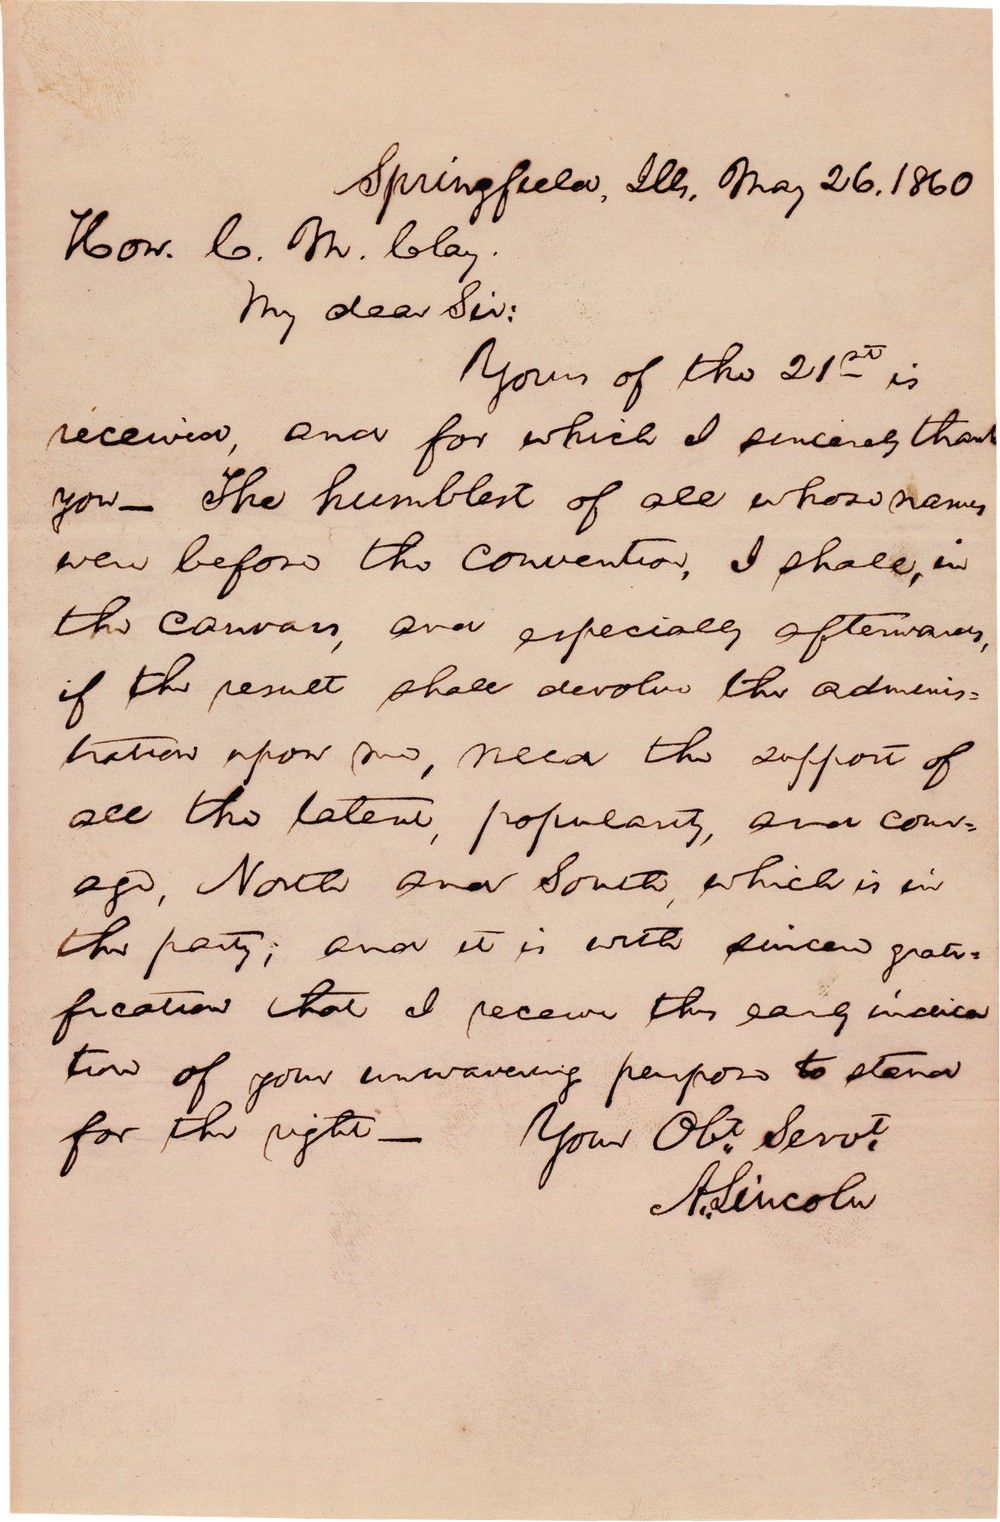 Springfield, Ills, May 26. 1860
Hon. C. M. Clay.
My dear Sir:
Yours of the 21st is
received, and for which I sincerely thank
you— The humblest of all whose names
were before the convention, I shall, in
the canvass, and especially afterwards,
if the result shall devolve the adminis=
tration upon me, need the support of
all the talent, popularity, and cour=
age, North and South, which is in
the party; and it is with sincere grati=
fication that I receive this early indica
tion of your unwavering purpose to stand
for the right— Your Obt. Servt.
A. Lincoln